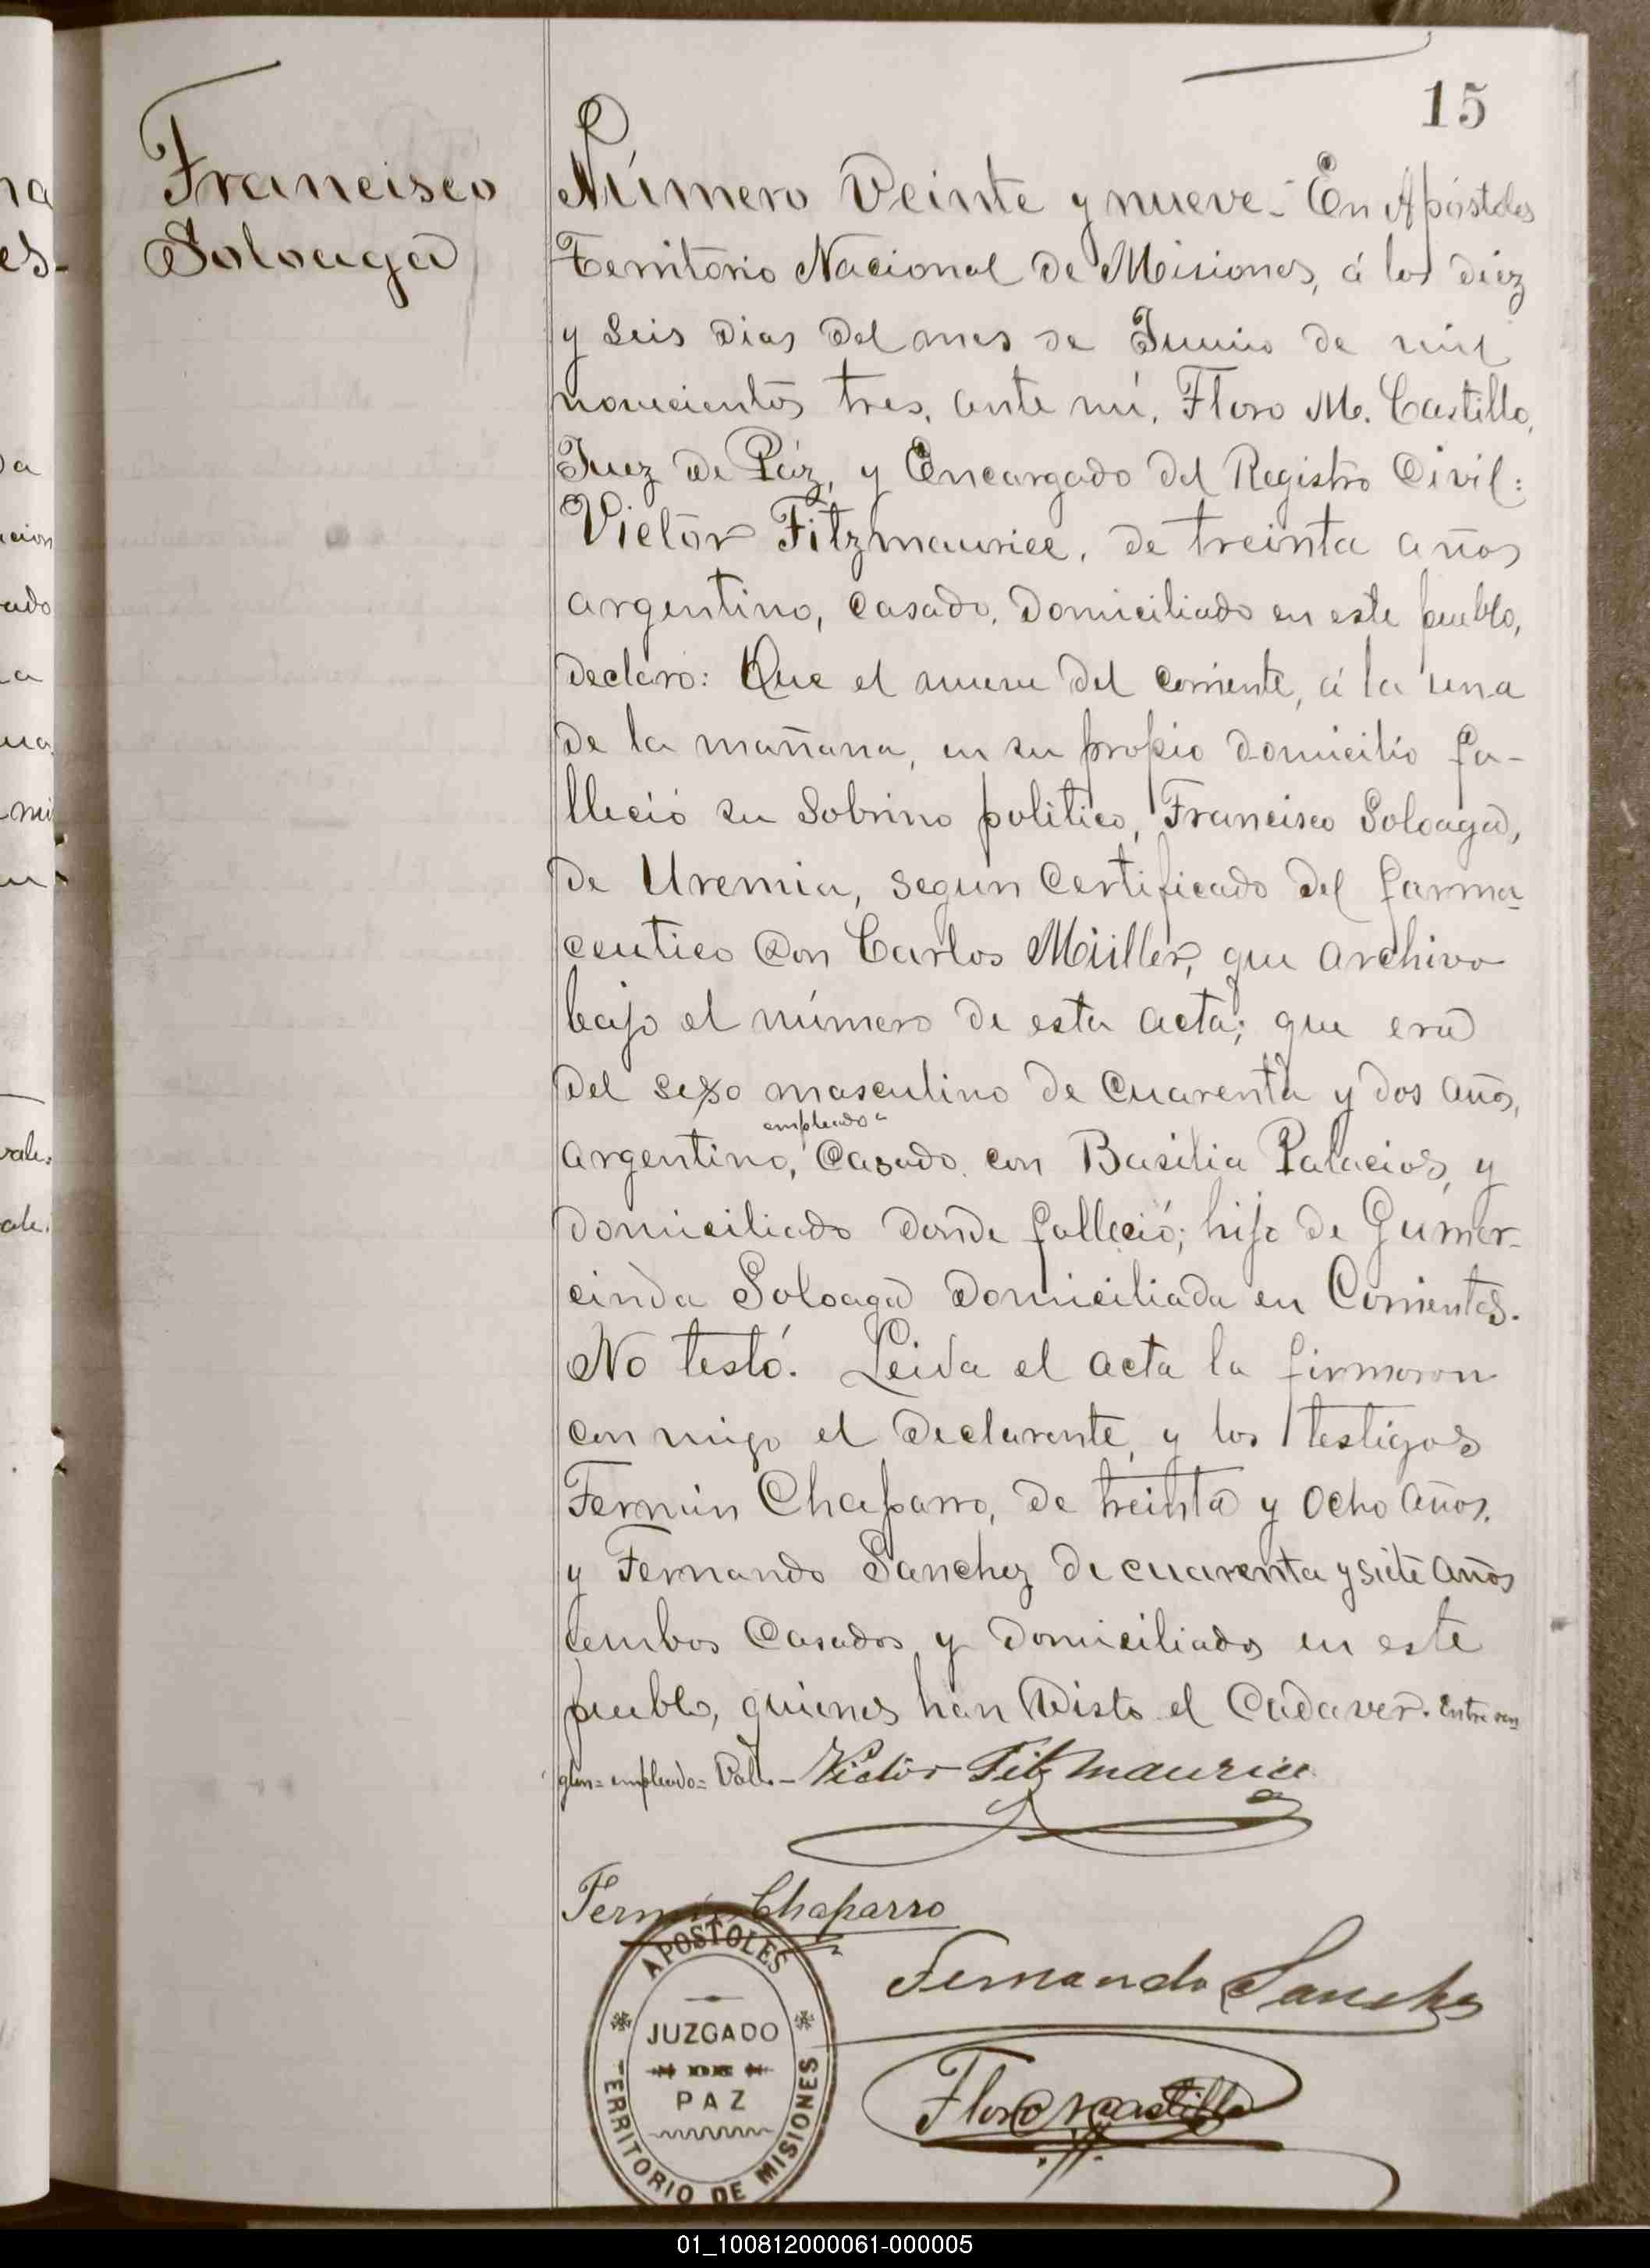 15
Francisco
Soloaga
Número Veinte y nueve.- En Apóstoles
Territorio Nacional de Misiones, á los diez
y seis dias del mes de Junio de mil
novecientos tres, ante mí, Floro M. Castillo,
Juez de Páz, y Encargado del Registro Civil:
Victor Fitzmaurice, de treinta años
argentino, casado, domiciliado en este pueblo,
declaró: Que el nueve del corriente, á la una
de la mañana, en su propio domicilio fa-
lleció su sobrino politico, Francisco Soloaga,
de Uremia, segun certificado del farma-
ceutico Don Carlos Müller, que archivo
bajo el número de esta acta; que era
del sexo masculino de cuarenta y dos años,
empleado
argentino, Casado con Basilia Palacios, y
domiciliado donde falleció; hijo de Gumer-
cinda Soloaga domiciliada en Corrientes.
No testó. Leida el acta la firmaron
con migo el declarante, y los testigos
Fermin Chaparro, de treinta y ocho años,
y Fernando Sanchez de cuarenta y siete años
ambos casados y domiciliados en este
pueblo, quienes han visto el Cadaver. Entre ren
glon= empleado= Vale.- Victor Fitz maurice
Fermin Chaparro
Fernando Sanchez
Floro M Castillo
APOSTOLES
JUZGADO
DE
PAZ
TERRITORIO DE MISIONES
01_100812000061-000005